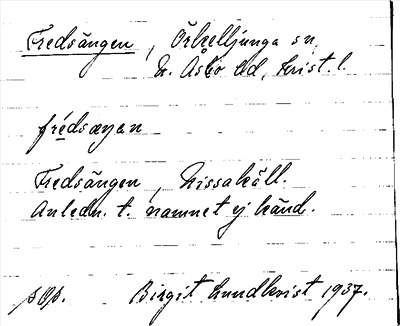 Fredsängen, Örkelljunga sn,
N. Åsbo hd, Krist. l.
frédsæŋan
Fredsängen, Nissakäll.
Anledn. t. namnet ej känd.
Birgit Lundkvist 1937.